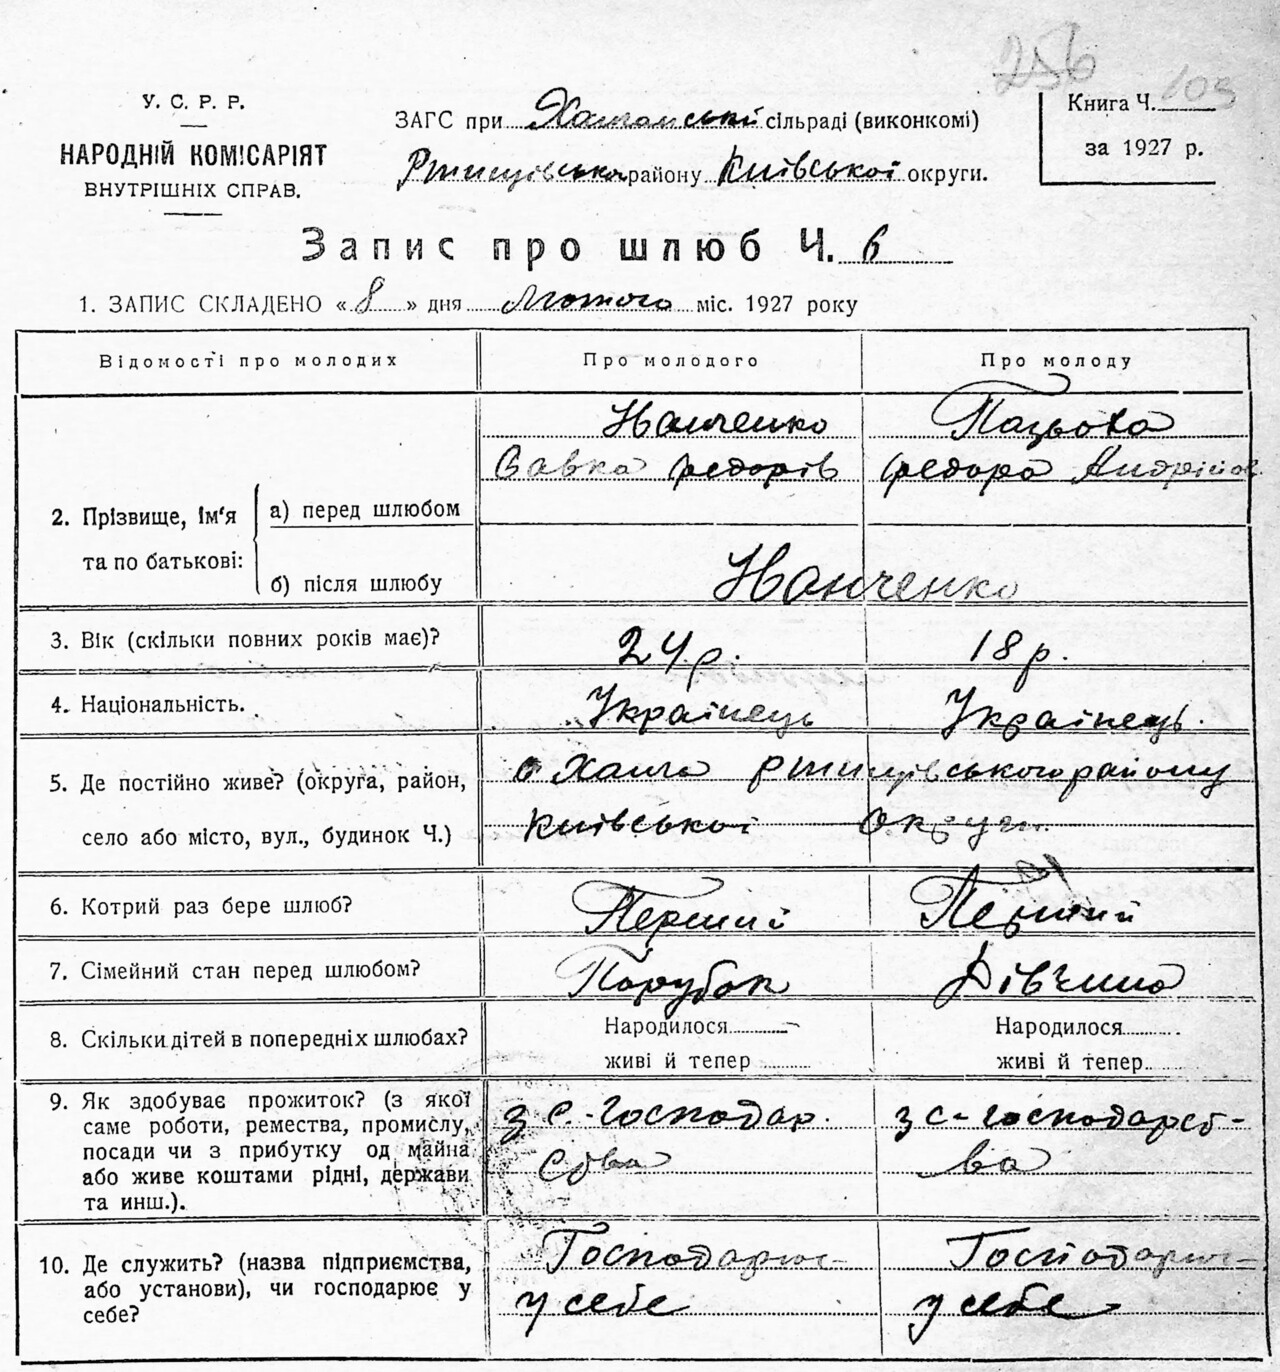 256
У. С. Р. Р.
НАРОДНІЙ КОМІСАРІЯТ
ВНУТРІШНІХ СПРАВ.
ЗАГС при сільраді (виконкомі)
Ржищівська району Київської округи.
Книга Ч. 103
за 1927 р.
Запис про шлюб Ч. 6
1. ЗАПИС СКЛАДЕНО « 8 » дня Лютого міс. 1927 року
Відомості про молодих Про молодого Про молоду
2. Прізвище, ім'я та по батькові:
а) перед шлюбом
Иванченко
Савка Федорів
Пацьоха
Федора Андріїов
б) після шлюбу
Иванченко
3. Вік (скільки повних років має)? 24 р. 18 р.
4. Національність. Українець Українець.
5. Де постійно живе? (округа, район, село або місто, вул., будинок Ч.)
ржищівського району
Київської округи
6. Котрий раз бере шлюб? Перший Перший
7. Сімейний стан перед шлюбом? Парубок Дівчина
8. Скільки дітей в попередніх шлюбах? Народилося Народилося
живі й тепер живі й тепер
9. Як здобуває прожиток? (з якої
саме роботи, ремества, промислу,
посади чи з прибутку од майна
або живе коштами рідні, держави
та инш.).
з с.-господар.
ства
з с-господарст-
ва
10. Де служить? (назва підприємства,
або установи), чи господарює у
себе?
Господарює
у себе
Господарює
у себе